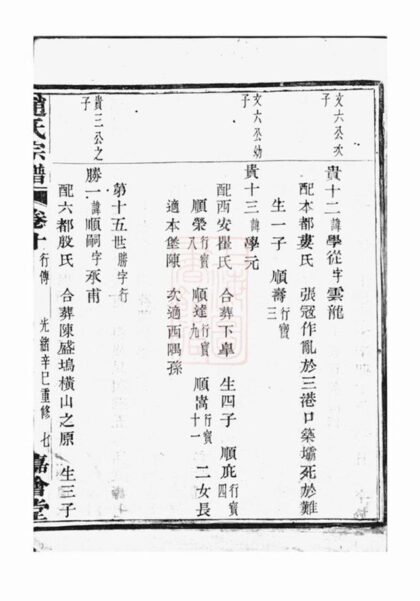 文六公次子
貴十二諱學從字雲龍
配本都婁氏 張冠作亂於三港口築壩死於難
生一子 順壽行寳三
文六公幼子
貴十三諱學元
配西安瞿氏 合葬下臯 生四子 順庇行寳四
順榮行寳八 順達行寳九 順嵩行寳十一 二女長
適本堡陳 次適西隅孫
第十五世勝字行
貴三公之子
勝一諱順嗣字承甫
配六都殷氏 合葬陳盛塢橫山之原 生三子
趙氏宗譜 卷十 行傳 光緒辛巳重修 七 嘉會堂